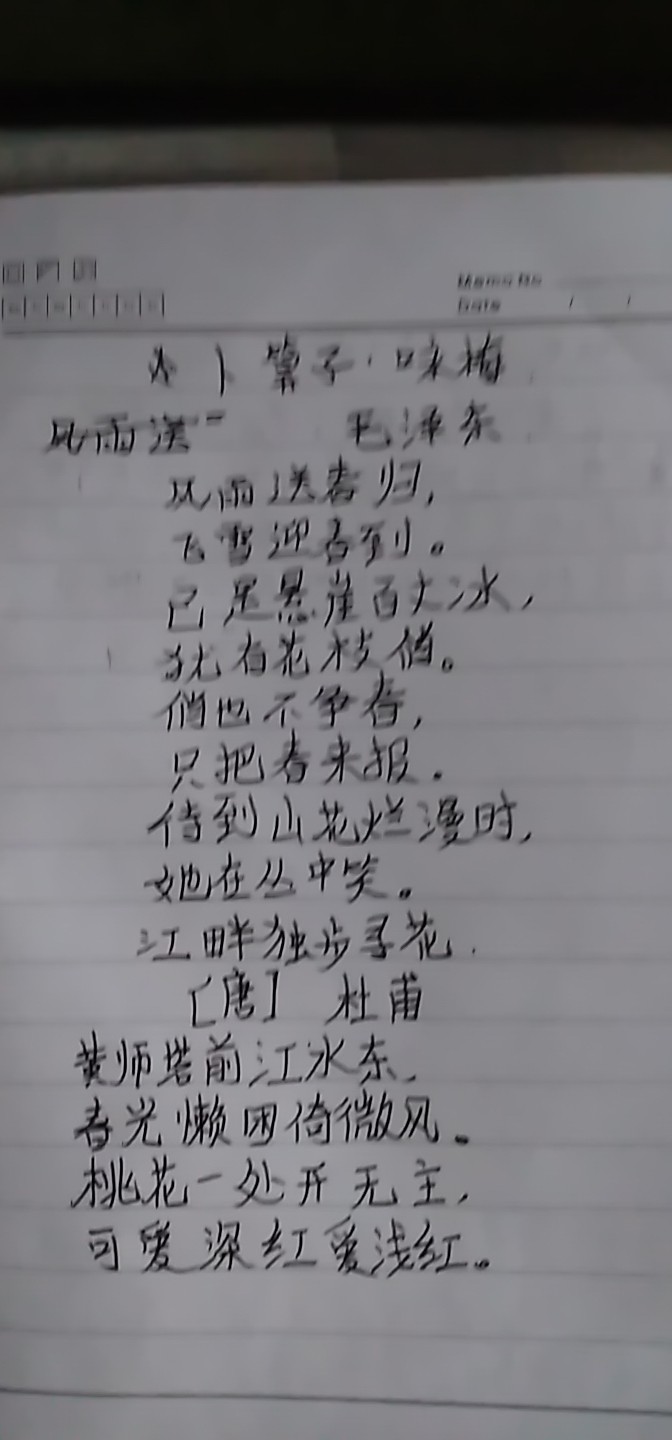 Memo No.
Date / /
卜算子·咏梅
风雨送 毛泽东
风雨送春归,
飞雪迎春到。
已是悬崖百丈冰,
犹有花枝俏。
俏也不争春,
只把春来报.
待到山花烂漫时,
她在丛中笑。
江畔独步寻花.
[唐] 杜甫
黄师塔前江水东,
春光懒困倚微风。
桃花一处开无主,
可爱深红爱浅红。